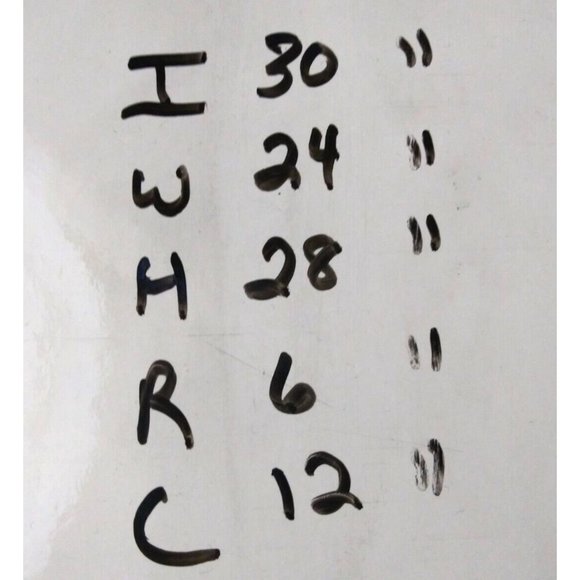 I 30 "
W 24 "
H 28 "
R 6 "
C 12 "